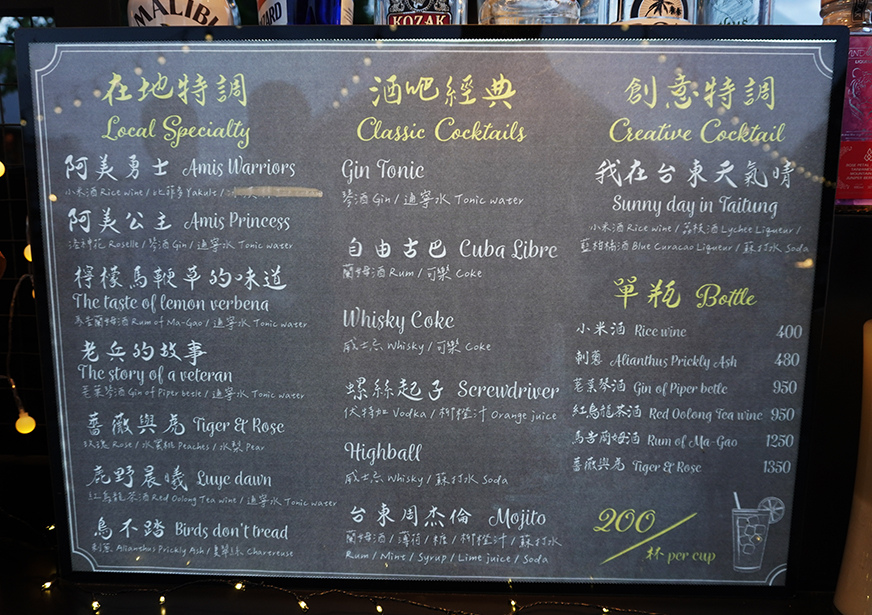 MALIBU
KOZAK
在地特調
Local Specialty
阿美勇士 Amis Warriors
小米酒 Rice wine / 比菲多 Yakult /
阿美公主 Amis Princess
洛神花 Roselle / 琴酒 Gin / 通寧水 Tonic water
檸檬馬鞭草的味道
The taste of lemon verbena
馬告蘭姆酒 Rum of Ma-Gao / 通寧水 Tonic water
老兵的故事
The story of a veteran
荖葉琴酒 Gin of Piper betle / 通寧水 Tonic water
薔薇與虎 Tiger & Rose
玫瑰 Rose / 水蜜桃 Peaches / 水梨 Pear
鹿野晨曦 Luye dawn
紅烏龍茶酒 Red Oolong Tea wine / 通寧水 Tonic water
鳥不踏 Birds don't tread
刺蔥 Alianthus Prickly Ash / 夏翠絲 Charereuse
酒吧經典
Classic Cocktails
Gin Tonic
琴酒 Gin / 通寧水 Tonic water
自由古巴 Cuba Libre
蘭姆酒 Rum / 可樂 Coke
Whisky Coke
威士忌 Whisky / 可樂 Coke
螺絲起子 Screwdriver
伏特加 Vodka / 柳橙汁 Orange juice
Highball
威士忌 Whisky / 蘇打水 Soda
台東周杰倫 Mojito
蘭姆酒 / 薄荷 / 糖 / 柳橙汁 / 蘇打水
Rum / Mint / Syrup / Lime juice / Soda
創意特調
Creative Cocktail
我在台東天氣晴
Sunny day in Taitung
小米酒 Rice wine / 荔枝酒 Lychee Liqueur /
藍柑橘酒 Blue Curacao Liqueur / 蘇打水 Soda
單瓶 Bottle
小米酒 Rice wine 400
刺蔥 Alianthus Prickly Ash 480
荖葉琴酒 Gin of Piper betle 950
紅烏龍茶酒 Red Oolong Tea wine 950
馬告蘭姆酒 Rum of Ma-Gao 1250
薔薇與虎 Tiger & Rose 1350
200
/ 杯 per cup